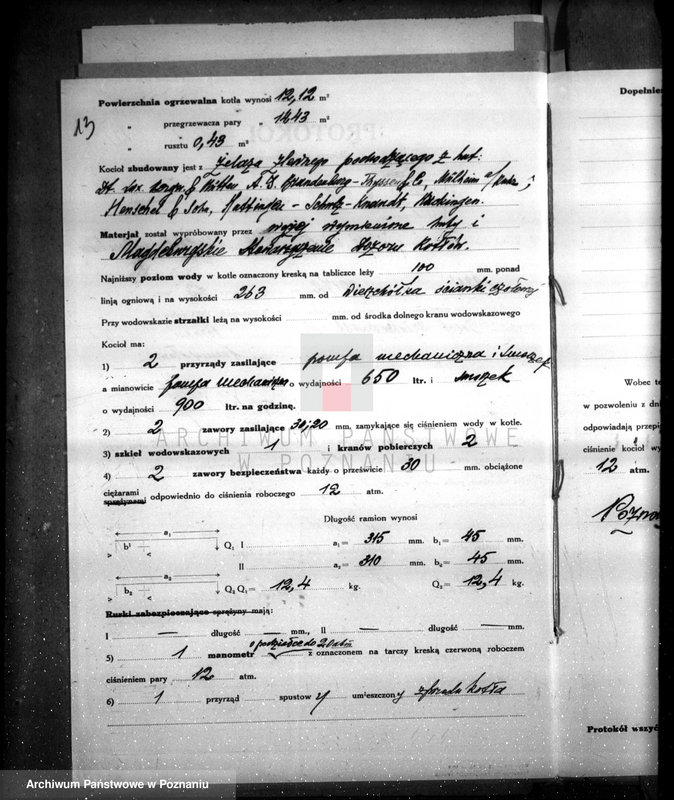 13
Powierzchnia ogrzewalna kotła wynosi 12,12 m²
" przegrzewacza pary " 14,43 m²
" rusztu 0,43 m²
Kocioł zbudowany jest z żelaza zlewnego pochodzącego z hut:
A. G. Brandenburg - Thyssen & Co, Mülheim a/Ruhr;
Henschel & Sohn, Hattingen -
Materjał został wypróbowany przez wyżej wymienione huty i
Magdeburgskie Stowarzyszenie dozoru Kotłów.
Najniższy poziom wody w kotle oznaczony kreską na tabliczce leży 100 mm. ponad
linją ogniową i na wysokości 263 mm. od wierzchołka ścianki czołowej
Przy wodowskazie strzałki leżą na wysokości mm. od środka dolnego kranu wodowskazowego
Kocioł ma:
1) 2 przyrządy zasilające pompa mechaniczna i smoczek
a mianowicie pompa mechaniczna o wydajności 650 ltr. i smoczek
o wydajności 900 ltr. na godzinę.
2) 2 zawory zasilające 30 i 20 mm, zamykające się ciśnieniem wody w kotle.
3) szkieł wodowskazowych 1 , kranów pobierczych 2
4) 2 zawory bezpieczeństwa każdy o prześwicie 30 mm. obciążone
ciężarami
sprężynami odpowiednio do ciśnienia roboczego 12 atm.
Długość ramion wynosi
a₁ b¹ Q₁ I a₁= 315 mm. b₁= 45 mm.
II a₂= 310 mm. b₂= 45 mm.
a₂ b₂ Q₂ Q₁= 12,4 kg. Q₂= 12,4 kg.
Rurki zabezpieczające sprężyny mają:
I — długość — mm., II — długość — mm.
o podziałce do 20 atm
5) 1 manometr z oznaczonem na tarczy kreską czerwoną roboczem
ciśnieniem pary 12 atm.
6) 1 przyrząd spustowy umieszczony z przodu kotła
ARCHIWUM PAŃSTWOWE
W POZNANIU
Dopełnie
Wobec te
w pozwoleniu z dni
odpowiadają przepi
ciśnienie kocioł wy
12 atm.
Pozna
Protokół wszyc
Archiwum Państwowe w Poznaniu